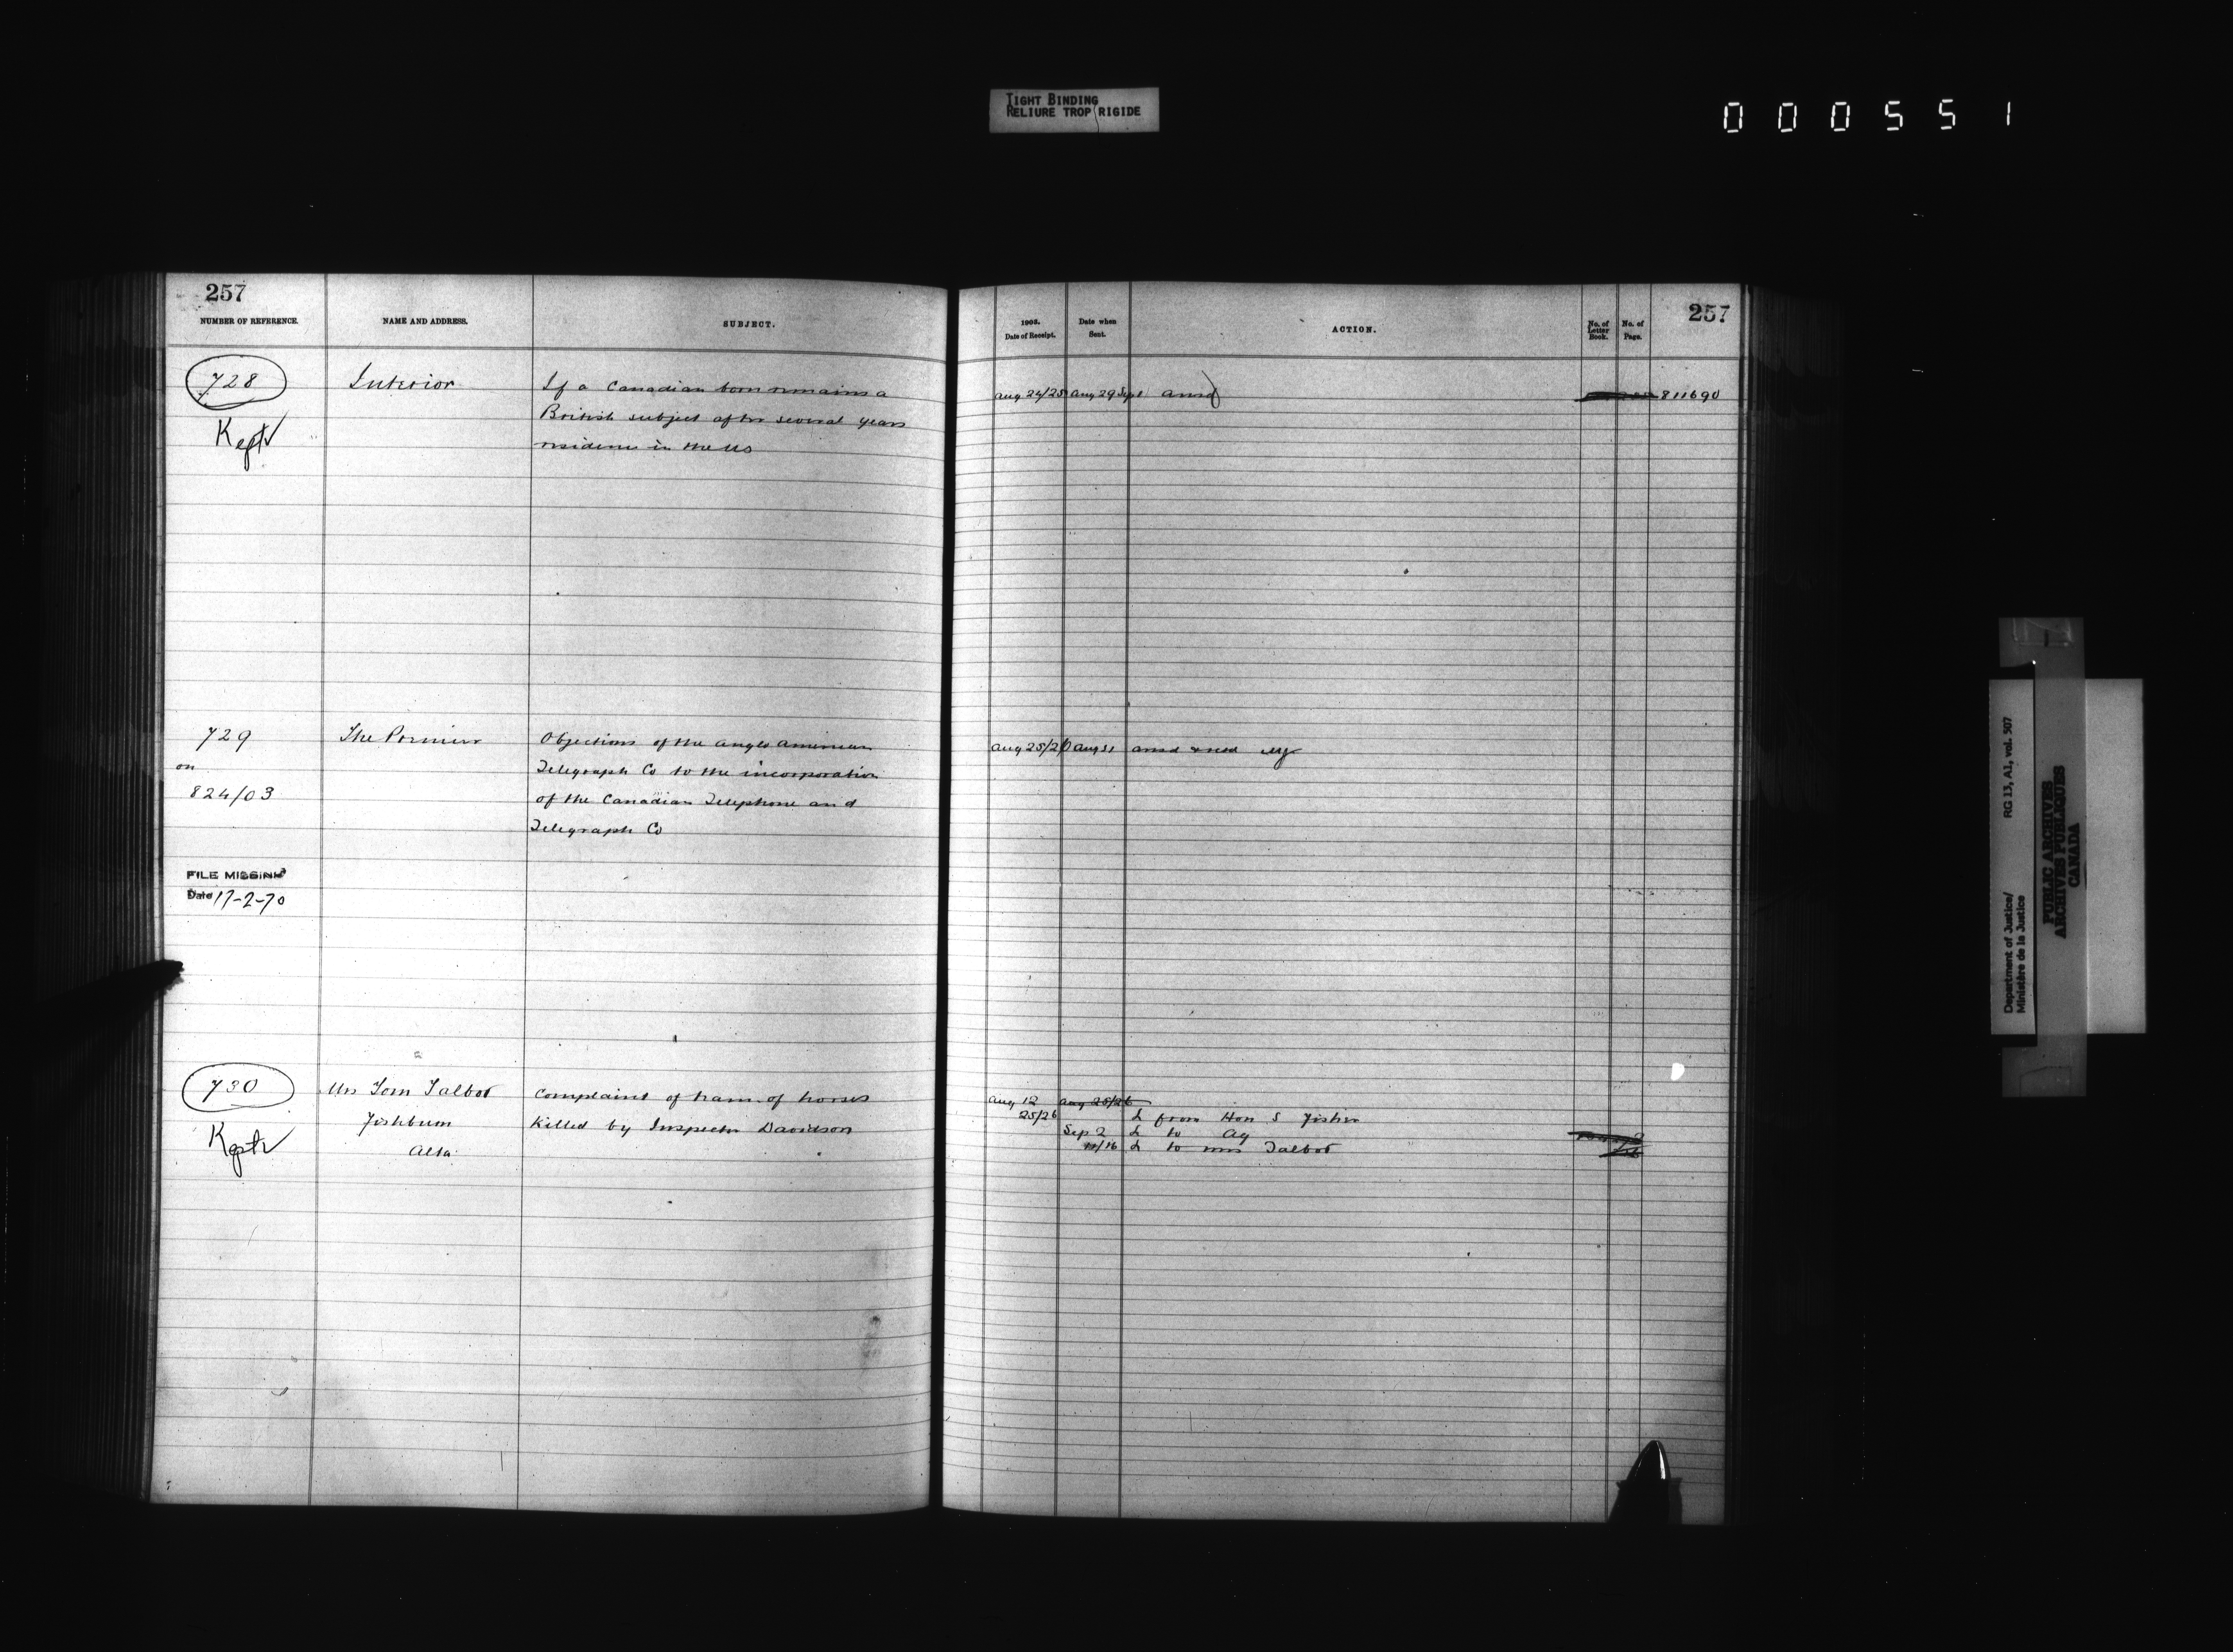 TIGHT BINDING
RELIURE TROP RIGIDE
000551
257
NUMBER OF REFERENCE.
NAME AND ADDRESS.
SUBJECT.
728
Kept
Interior
If a Canadian born remains a
British subject after several years
residence in the US
729
on
824/03
The Premier
Objections of the Anglo American
Telegraph Co to the incorporation
of the Canadian Telephone and
Telegraph Co
FILE MISSING
Date 17-2-70
730
Kept
Mrs Tom Talbot
Fishburn
Alta
Complaint of team of horses
killed by Inspector Davidson
257
1905.
Date of Receipt.
Date when
Sent.
ACTION.
No. of
Letter
Book.
No. of
Page.
Aug 24/25 Aug 29 Sep 1 ansd
811690
Aug 25/26 Aug 31 ansd
Aug 12 Aug 25/26
25/26 L from Hon S Fisher
Sep 2 L to Ag
/16 L to Mrs Talbot
Department of Justice/
Ministère de la Justice
RG 13, A1, vol. 507
PUBLIC ARCHIVES
ARCHIVES PUBLIQUES
CANADA